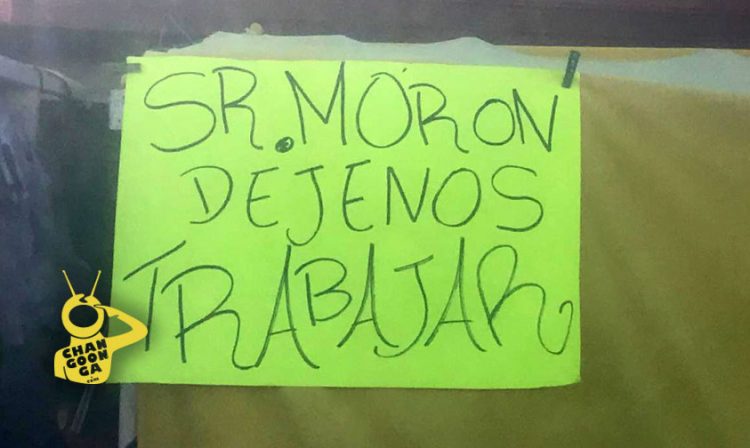 SR. MÓRON
DEJENOS
TRABAJAR
CHAN
GOON
GA
.com